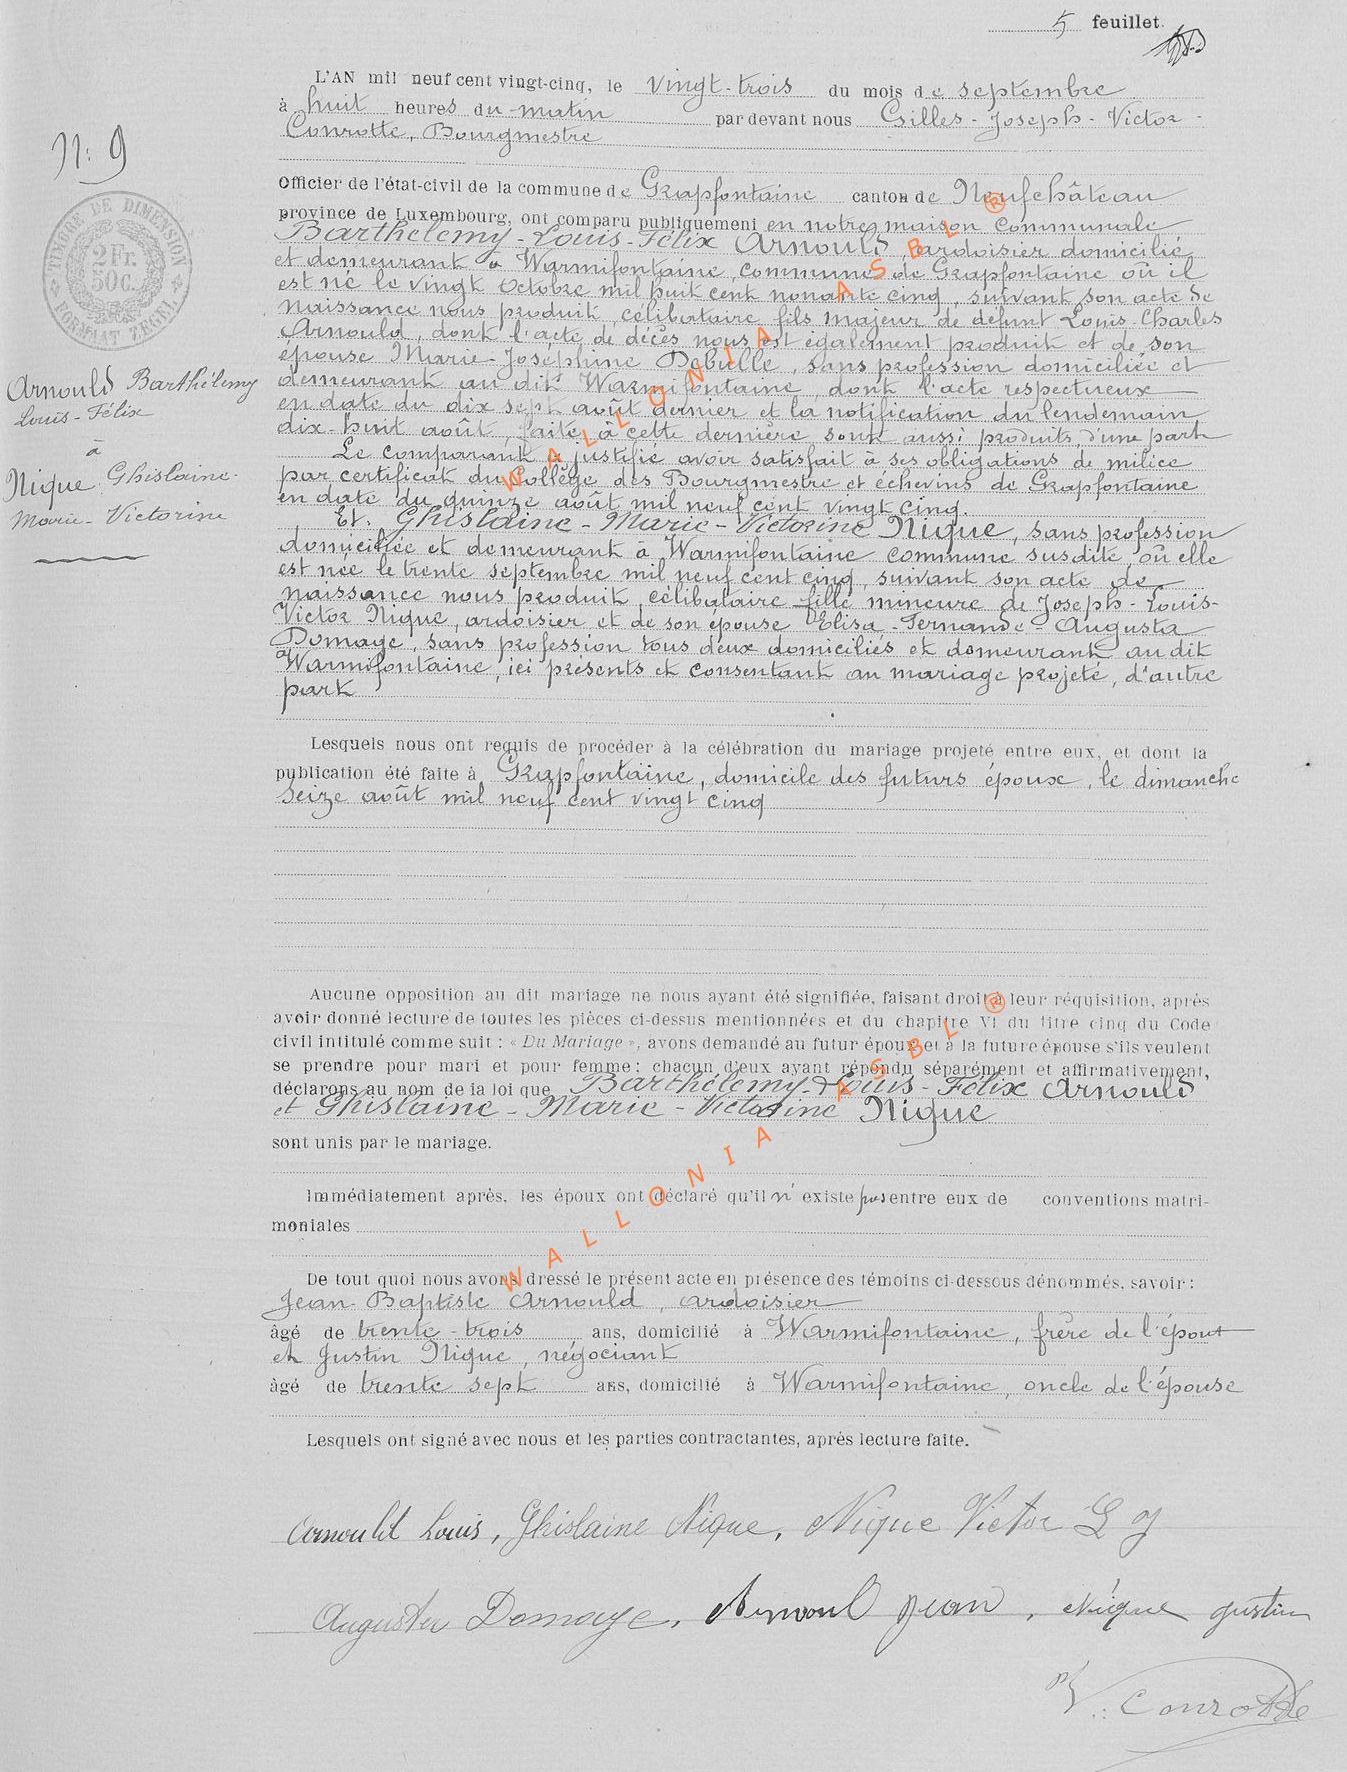 5 feuillet.
L'AN mil neuf cent vingt-cinq, le vingt-trois du mois de septembre
à huit heures du matin par devant nous Gilles-Joseph-Victor-
Conrotte, Bourgmestre
N: 9
Officier de l'état-civil de la commune de Grapfontaine canton de Neufchâteau
province de Luxembourg, ont comparu publiquement en notre maison communale
Barthélemy-Louis-Félix Arnould, ardoisier domicilié
et demeurant à Warmifontaine, commune de Grapfontaine où il
est né le vingt octobre mil huit cent nonante cinq, suivant son acte de
naissance nous produit, célibataire, fils majeur de défunt Louis-Charles
Arnould, dont l'acte de décès nous est également produit et de son
épouse Marie-Joséphine Debulle, sans profession domiciliée et
demeurant au dit Warmifontaine, dont l'acte respectueux
en date du dix sept août dernier et la notification du lendemain
dix-huit août, faite à cette dernière sont aussi produits d'une part
Le comparant a justifié avoir satisfait à ses obligations de milice
par certificat du Collège des Bourgmestre et échevins de Grapfontaine
en date du quinze août mil neuf cent vingt cinq.
Et. Ghislaine-Marie-Victorine Nique, sans profession
domiciliée et demeurant à Warmifontaine commune susdite, où elle
est née le trente septembre mil neuf cent cinq, suivant son acte de
naissance nous produit, célibataire fille mineure de Joseph-Louis-
Victor Nique, ardoisier et de son épouse Elisa-Fernande-Augusta
Domage, sans profession tous deux domiciliés et demeurant au dit
Warmifontaine, ici présents et consentant au mariage projeté, d'autre
part
TIMBRE DE DIMENSION
2 Fr.
50 c.
FORMAAT ZEGEL
Arnould Barthélemy
Louis-Félix
à
Nique Ghislaine-
Marie-Victorine
Lesquels nous ont requis de procéder à la célébration du mariage projeté entre eux, et dont la
publication été faite à Grapfontaine, domicile des futurs époux, le dimanche
seize août mil neuf cent vingt cinq
Aucune opposition au dit mariage ne nous ayant été signifiée, faisant droit à leur réquisition, après
avoir donné lecture de toutes les pièces ci-dessus mentionnées et du chapitre VI du titre cinq du Code
civil intitulé comme suit : « Du Mariage », avons demandé au futur époux et à la future épouse s'ils veulent
se prendre pour mari et pour femme : chacun d'eux ayant répondu séparément et affirmativement,
déclarons au nom de la loi que Barthélemy-Louis-Félix Arnould
et Ghislaine-Marie-Victorine Nique
sont unis par le mariage.
Immédiatement après, les époux ont déclaré qu'il n'existe pas entre eux de conventions matri-
moniales
De tout quoi nous avons dressé le présent acte en présence des témoins ci-dessous dénommés, savoir :
Jean-Baptiste Arnould, ardoisier
âgé de trente-trois ans, domicilié à Warmifontaine, frère de l'époux
et Justin Nique, négociant
âgé de trente sept ans, domicilié à Warmifontaine, oncle de l'épouse
Lesquels ont signé avec nous et les parties contractantes, après lecture faite.
Arnould Louis, Ghislaine Nique, Nique Victor L J
Augusta Domage, Arnoul Jean, Nique Justin
V. Conrotte
WALLONIA ASBL ®
WALLONIA ASBL ®